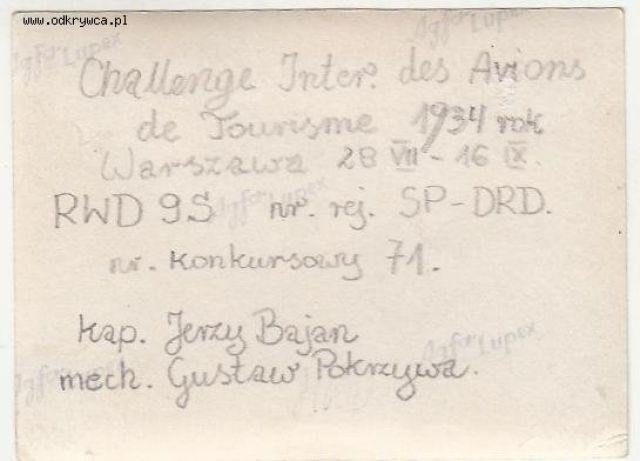 www.odkrywca.pl
Agfa Lupex
Agfa Lupex
Challenge Inter. des Avions
de Tourisme 1934 rok
Warszawa 28 VIII - 16 IX.
RWD 9S nr. rej. SP-DRD.
Agfa Lupex
nr. konkursowy 71.
kap. Jerzy Bajan
mech. Gustaw Pokrzywa.
Agfa Lupex
Agfa Lupex